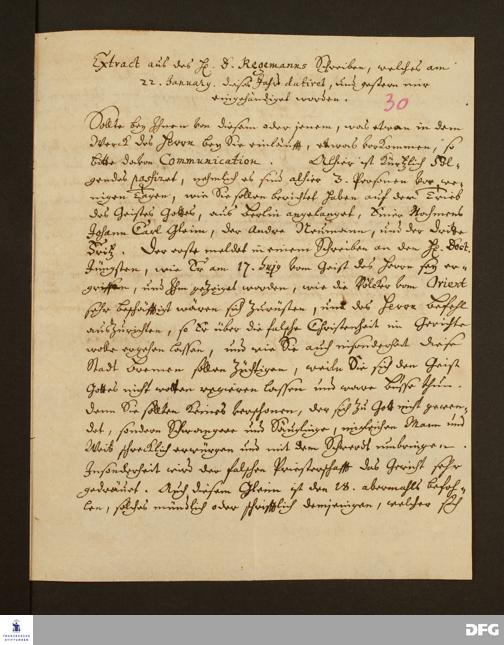 Extract aus des H. D. Regemanns Schreiben, welches am
22. January. dieses Jahrs datiret, und gestern mir
eingehändiget worden.
30
Sollte bey Ihnen von diesem oder jenem, was etwan in dem
Werck des Herrn bey Sie einläufft, etwas vorkommen, so
bitte davon Communication. Alhier ist kürtzlich fol-
gendes passiret, nehmlich es sind alhier 3. Personen vor we-
nigen Tagen, wie Sie sollen berichtet haben auf den Trieb
des Geistes Gottes, aus Berlin angelanget, Einer Nahmens
Johann Carl Gleim, der andre Neumann, und der dritte
Fritz. Der erste meldet in einem Schreiben an den H. Doct.
Jüngsten, wie Er am 17. vom Geist des Herrn sey er-
griffen, und Ihm gezeiget worden, wie die Völcker vom Orient
sehr beschäfftigt wären sich zurüsten, und des Herrn Befehl
auszurichten, so Er über die falsche Christenheit im Gerichte
wolle ergehen lassen, und wie Sie auch insonderheit diese
Stadt Bremen sollen züchtigen, weiln Sie sich den Geist
Gottes nicht wollen regieren lassen und ware Busse thun.
denn Sie sollten keines verschonen, der sich zu Gott nicht gewen-
det, sondern Schwangere und Säuglinge, ingleichen Mann und
Weib schrecklich erwürgen und mit dem Schwerdt umbringen.
Insonderheit wird der falschen Priesterschafft das Gericht sehr
gedräuet. Auch diesem Gleim ist den 18. abermahls befoh-
len, solches mündlich oder schrifftlich demjenigen, welcher sich
FRANCKESCHE
STIFTUNGEN
DFG